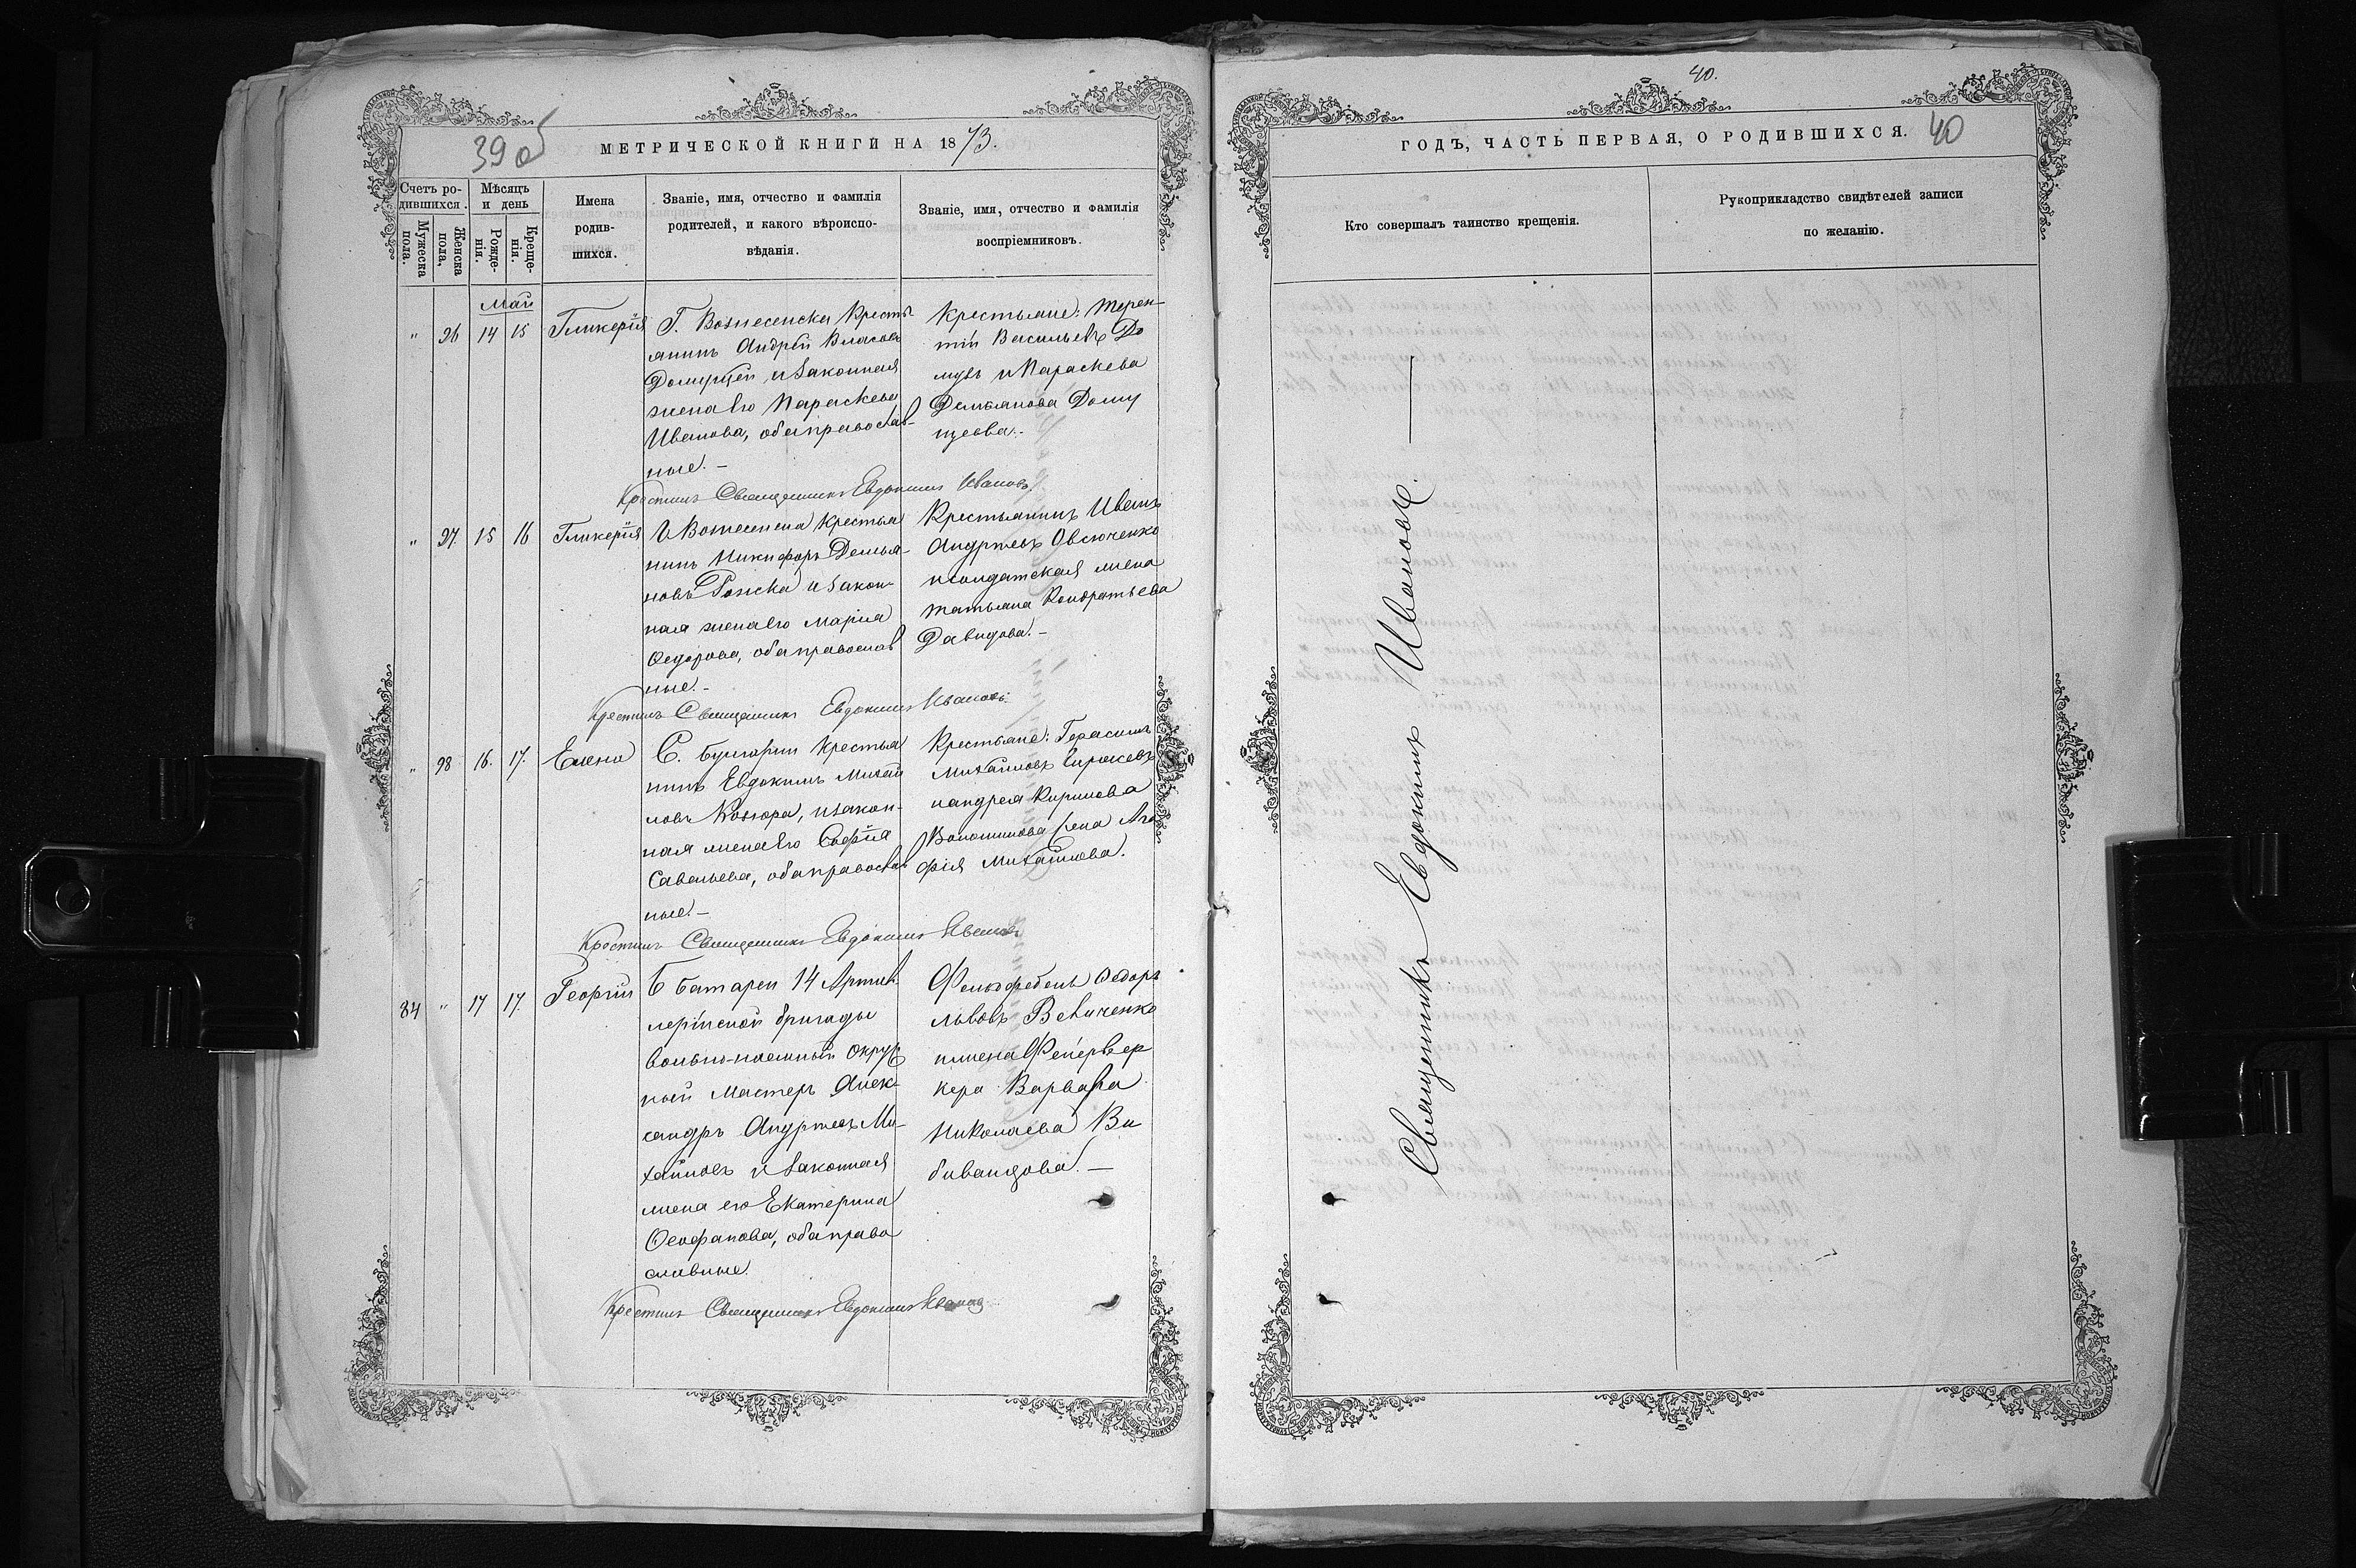 39 об
МЕТРИЧЕСКОЙ КНИГИ НА 1873.
Счетъ ро-
дившихся.
Мужеска
пола.
Женска
пола,
Мѣсяцъ
и день
Рожде-
нія.
Креще-
нія.
Имена
родив-
шихся.
Званіе, имя, отчество и фамилія
родителей, и какого вѣроиспо-
вѣданія.
Званіе, имя, отчество и фамилія
воспріемниковъ.
Май
" 96 14 15 Гликерія
Г. Вознесенска Кресть
янинъ Андрей Власовъ
и законная
жена его Параскева
Иванова, оба православ-
ные.-
Крестьяне: Терен-
тій Васильевъ До
и Параскева
Демьянова Дому
Крестилъ Священникъ Евдокимъ Ивановъ.
" 97. 15 16 Гликерія
Г. Вознесенска крестья
нинъ Никифоръ Демья-
новъ и закон-
ная жена его Марія
Ѳедорова, оба православ
ные.-
Крестьянинъ Иванъ
Андреевъ Овсюченко
и солдатская жена
Татьяна Кондратьева
Давидова.-
Крестилъ Священникъ Евдокимъ Ивановъ.
" 98 16. 17. Елена
С. Булгарки крестья
нинъ Евдокимъ Михай
ловъ и закон-
ная жена его Софія
Савельева, оба православ
ные.-
Крестьяне: Герасимъ
Михайловъ
Кирилова
фія Михайлова.
Крестилъ Священникъ Евдокимъ Ивановъ
84 " 17 17. Георгій
Б батареи 14 Артил
лерійской бригады
вольно-наемный
ный Мастеръ Алек-
сандръ Андреевъ Ми-
хайловъ и законная
жена его Екатерина
Ѳеофанова, оба право
славные.
Фельдфебель Ѳедоръ
Львовъ
и жена Фейервер
кера Варвара
Николаева
Крестилъ Священникъ Евдокимъ Ивановъ
40.
ГОДЪ, ЧАСТЬ ПЕРВАЯ, О РОДИВШИХСЯ. 40
Кто совершалъ таинство крещенія.
Рукоприкладство свидѣтелей записи
по желанію.
Священникъ Евдокимъ Ивановъ.